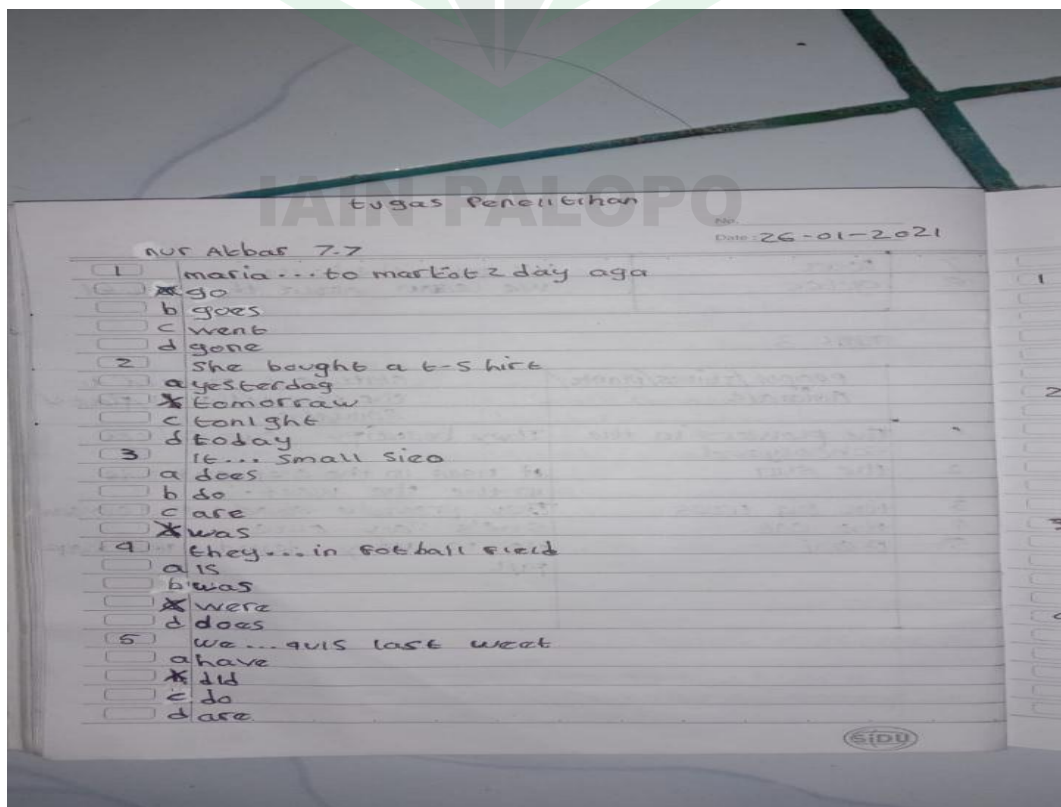 IAIN PALOPO
tugas Penelitihan
No.
Date: 26-01-2021
nur Akbar 7.7
1 maria...to markot 2 day aga
a go
b goes
c went
d gone
2 She bought a t-Shirt
a yesterdag
b tomorraw
c tonight
d today
3 It... Small Siео
a does
b do
c are
d was
4 they...in football field
a is
b was
c were
d does
5 we...quis last week
a have
b did
c do
d are
SiDU
1
2
3